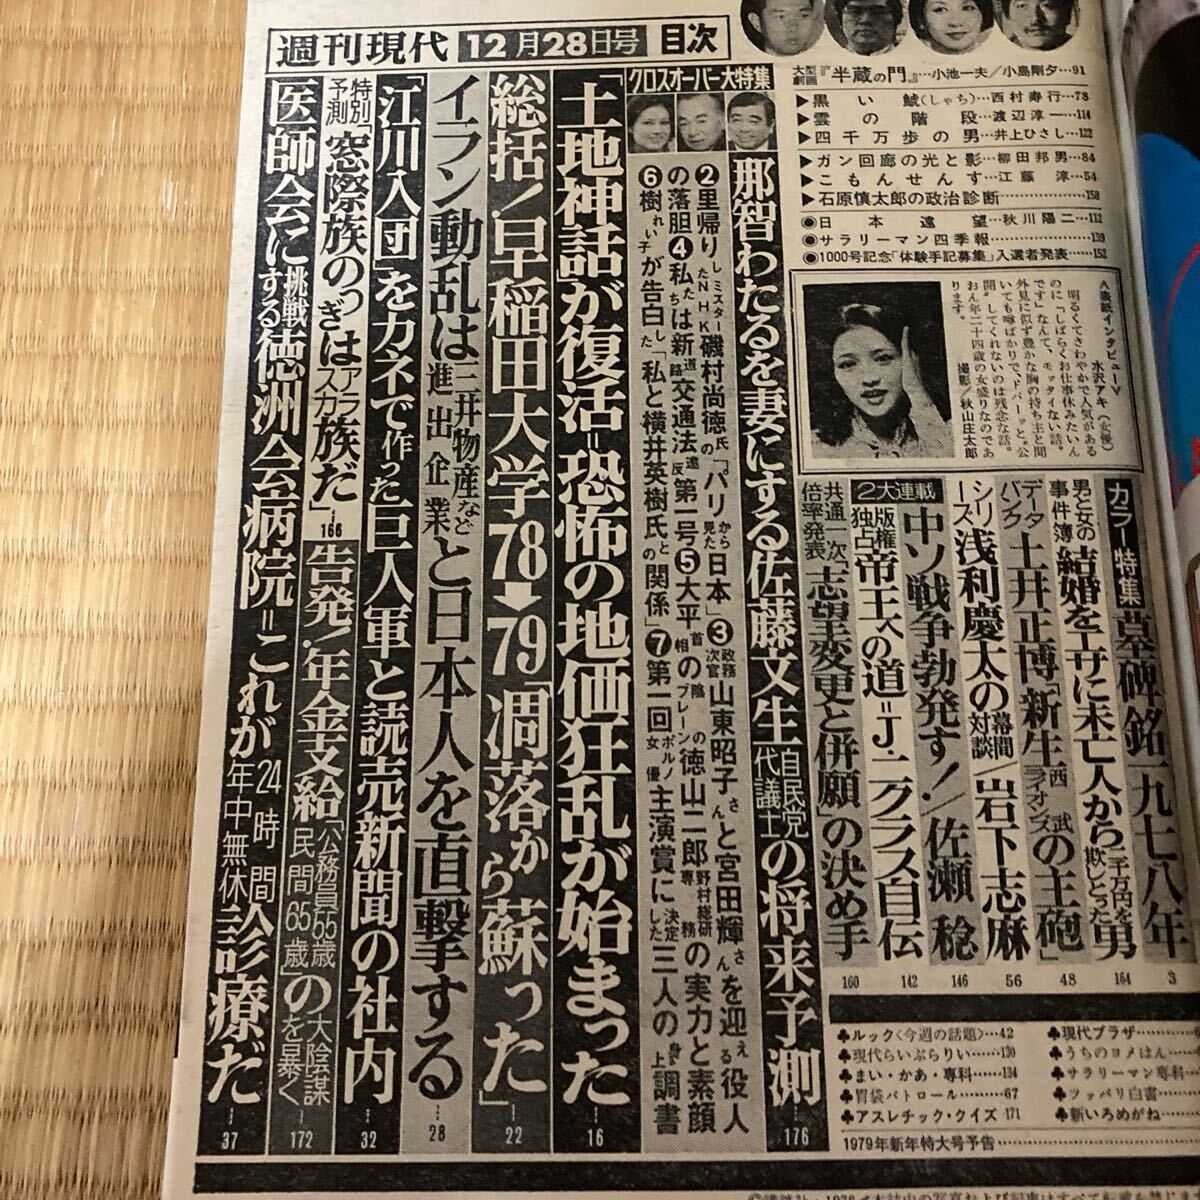 週刊現代 12月28日号 目次
大型劇画『半蔵の門』…小池一夫／小島剛夕…91
▶黒い鯱(しゃち) 西村寿行…78
▶雲の階段 渡辺淳一…114
▶四千万歩の男 井上ひさし…122
▶ガン回廊の光と影 柳田邦男…84
▶こもんせんす 江藤淳…54
▶石原慎太郎の政治診断…158
●日本遠望 秋川陽二…112
●サラリーマン四季報…139
●1000号記念「体験手記募集」入選者発表…152
〈表紙インタビュー〉 水沢アキ(女優)
明るくてさわやかで人気がある
のに「しばらくお仕事休みたいん
です」なんて、モッタイない話。
外見に似ず豊かな胸の持ち主と聞
いても噂ばかりで、ドバーッと“公
開”してくれないのは残念な話。
おん年二十四歳の女盛りなのであ
ります。 撮影／秋山庄太郎
カラー特集 墓碑銘一九七八年 3
男と女の事件簿 結婚をエサに未亡人から二千万円を欺しとった男 164
データバンク 土井正博「新生西武ライオンズの主砲」 48
シリーズ 浅利慶太の幕間対談／岩下志麻 56
2大連載
中ソ戦争勃発す！／佐瀬稔 146
版権独占 帝王への道＝J・ニクラス自伝 142
共通一次倍率発表「志望変更と併願」の決め手 160
クロスオーバー大特集
那智わたるを妻にする佐藤文生自民党代議士の将来予測 176
②里帰りしたNHKミスター磯村尚徳氏の「パリから見た日本」③政務次官山東昭子さんと宮田輝さんを迎える役人
の落胆④私たちは新道路交通法違反第一号⑤大平首相の陰のブレーン徳山二郎野村総研専務の実力と素顔
⑥樹れい子が告白した「私と横井英樹氏との関係」⑦第一回ポルノ女優主演賞に決定した三人の身上調書
「土地神話」が復活＝恐怖の地価狂乱が始まった 16
総括！早稲田大学78➡79「凋落から蘇った」 22
イラン動乱は三井物産など進出企業と日本人を直撃する 28
「江川入団」をカネで作った巨人軍と読売新聞の社内 32
特別予測「窓際族のつぎはアラスカ族だ」 166
告発！年金支給「公務員55歳民間65歳」の大陰謀を暴く 172
医師会に挑戦する徳洲会病院＝これが24時間年中無休診療だ 37
♣ルック〈今週の話題〉…42
♣現代らいぶらりい……130
♣まい・かあ・専科……134
♣胃袋パトロール……67
♣アスレチック・クイズ 171
♣現代プラザ
♣うちのヨメはん
♣サラリーマン専科
♣ツッパリ白書
♣新いろめがね
1979年新年特大号予告